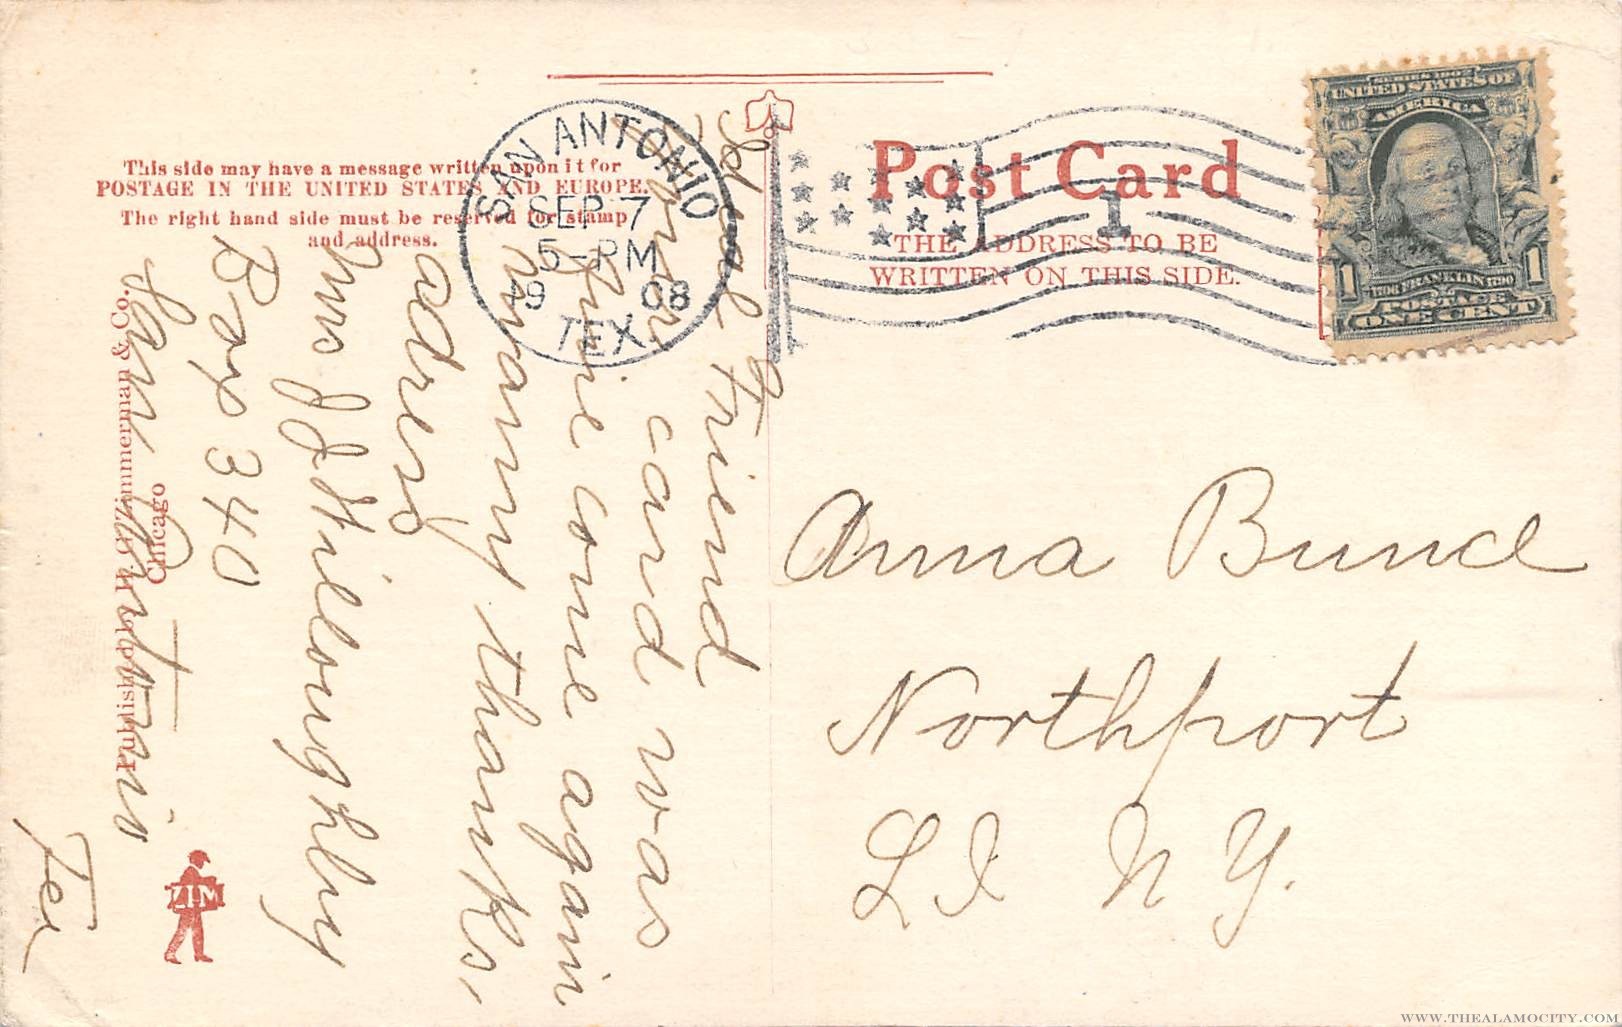 This side may have a message written upon it for
POSTAGE IN THE UNITED STATES AND EUROPE.
The right hand side must be reserved for stamp
and address.
SAN ANTONIO
SEP 7
5-PM
19 08
TEX.
Post Card
1
THE ADDRESS TO BE
WRITTEN ON THIS SIDE.
SERIES 1902
UNITED STATES OF
AMERICA
1706 FRANKLIN 1790
1 POSTAGE 1
ONE CENT
Dear Friend
your card was
fine come again
many thanks,
adress
Mrs J J Willoughby
Box 340
San Antonio
Tex
Anna Bunce
Northport
L I N Y.
Published by H. G. Zimmerman & Co.
Chicago
ZIM
WWW.THEALAMOCITY.COM